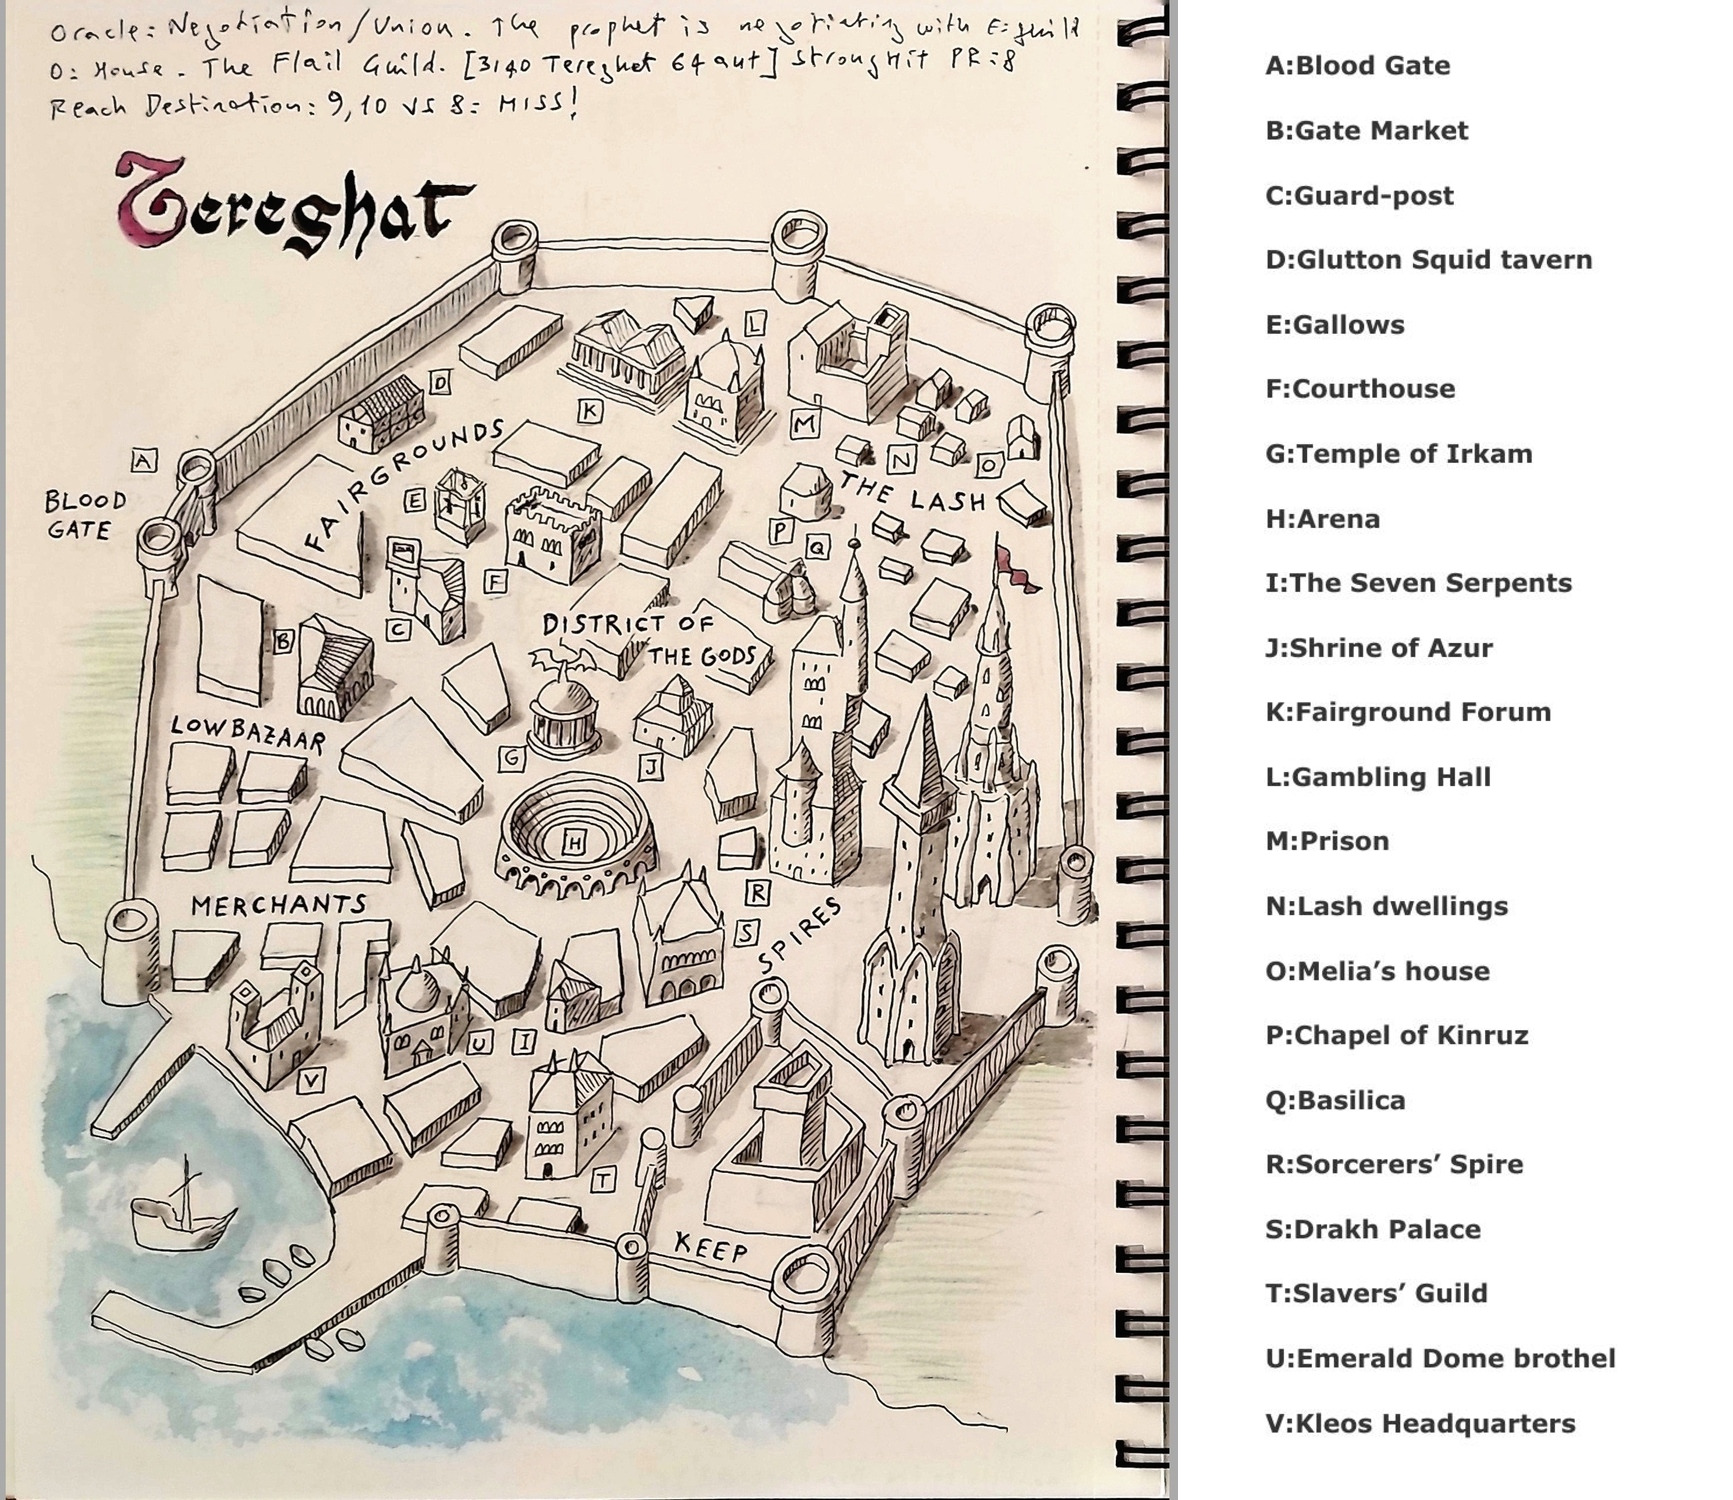 Oracle: Negotiation/Union. The prophet is negotiating with E: guild
O: House. The Flail Guild. [3140 Tereghet 64 aut] strong Hit PR:8
Reach Destination: 9,10 vs 8: MISS!
Tereghat
L
D
K
M
A
FAIRGROUNDS
N
O
BLOOD
GATE
E
THE LASH
P
Q
F
B
C
DISTRICT OF
THE GODS
LOW BAZAAR
G
J
H
MERCHANTS
R
S
SPIRES
U
I
V
T
KEEP
A:Blood Gate
B:Gate Market
C:Guard-post
D:Glutton Squid tavern
E:Gallows
F:Courthouse
G:Temple of Irkam
H:Arena
I:The Seven Serpents
J:Shrine of Azur
K:Fairground Forum
L:Gambling Hall
M:Prison
N:Lash dwellings
O:Melia’s house
P:Chapel of Kinruz
Q:Basilica
R:Sorcerers’ Spire
S:Drakh Palace
T:Slavers’ Guild
U:Emerald Dome brothel
V:Kleos Headquarters